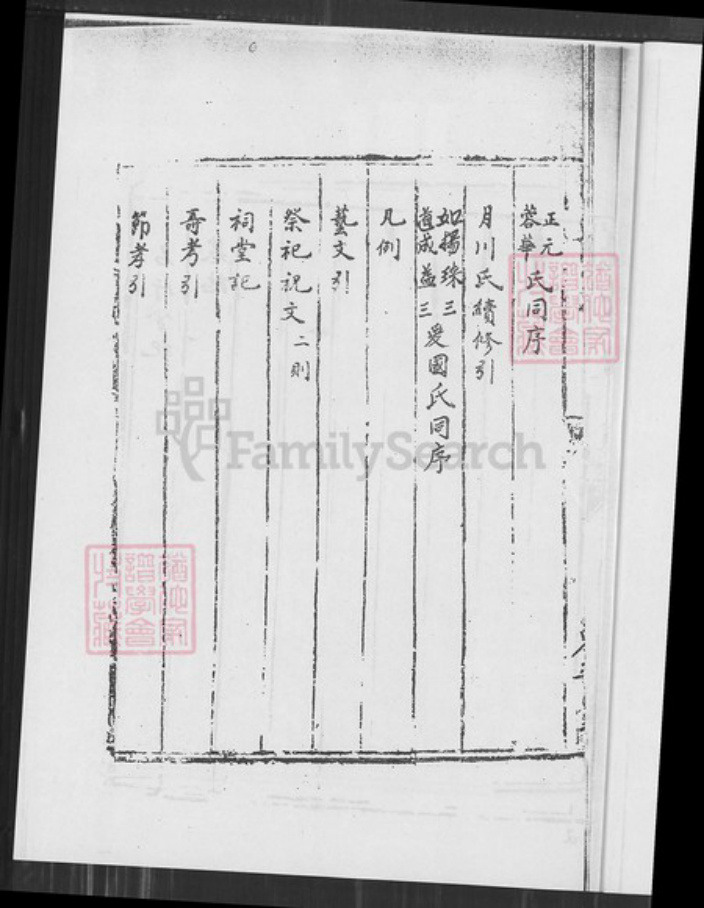 正元
蓉華氏同序
月川氏續修引
如揚珠三
道成益三愛國氏同序
凡例
藝文引
祭祀祝文二則
祠堂記
壽考引
節孝引
FamilySearch